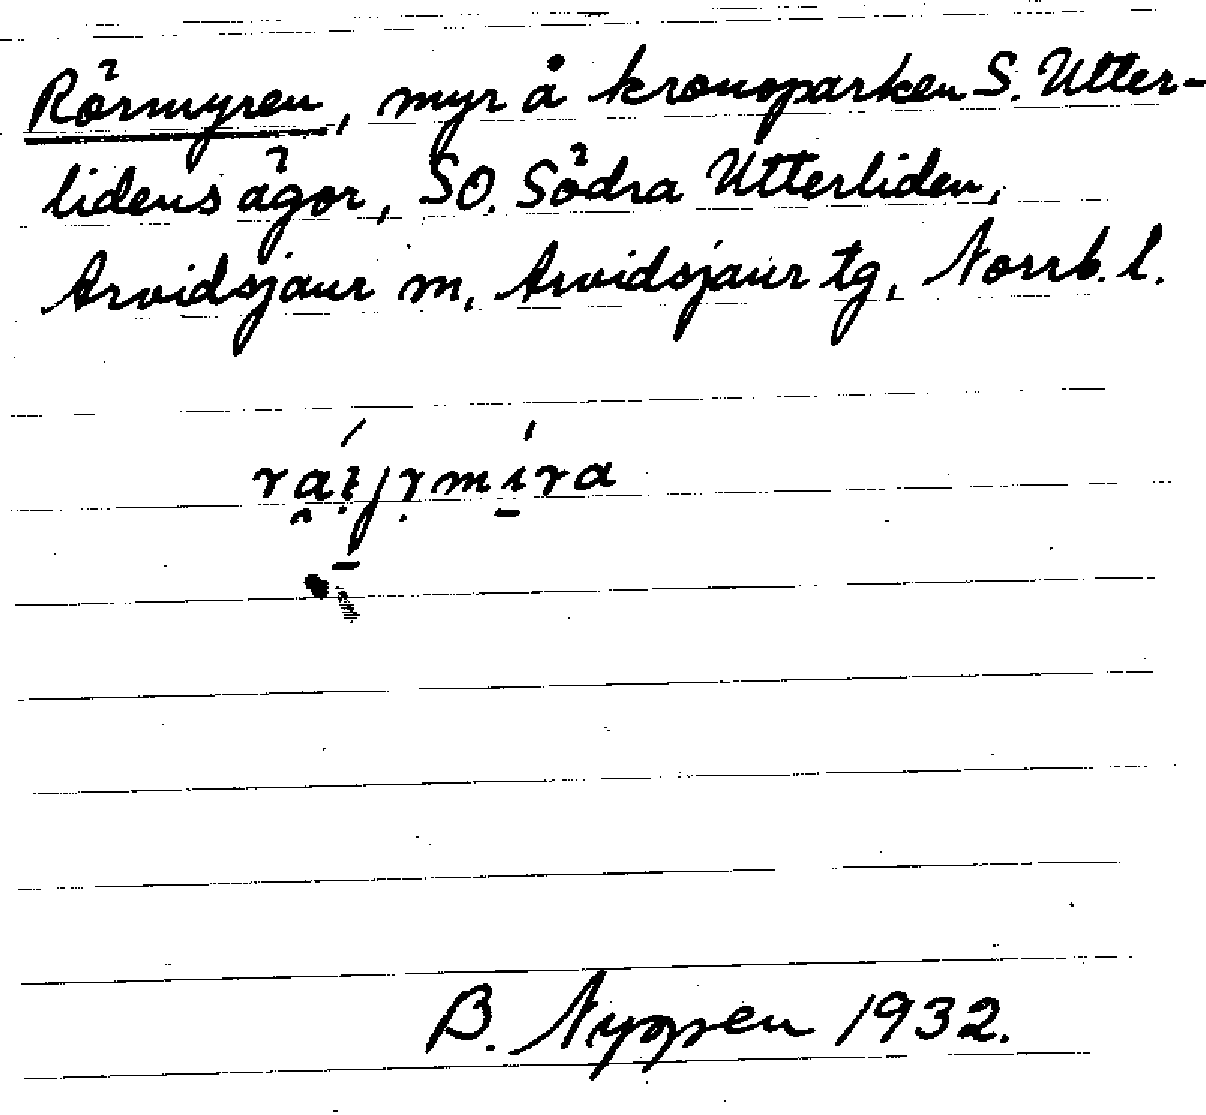 Rörmyren, myr å kronoparken S. Utter-
lidens ägor, SO. Södra Utterliden,
Arvidsjaur sn, Arvidsjaur tg, Norrb. l.
B. Nygren 1932.